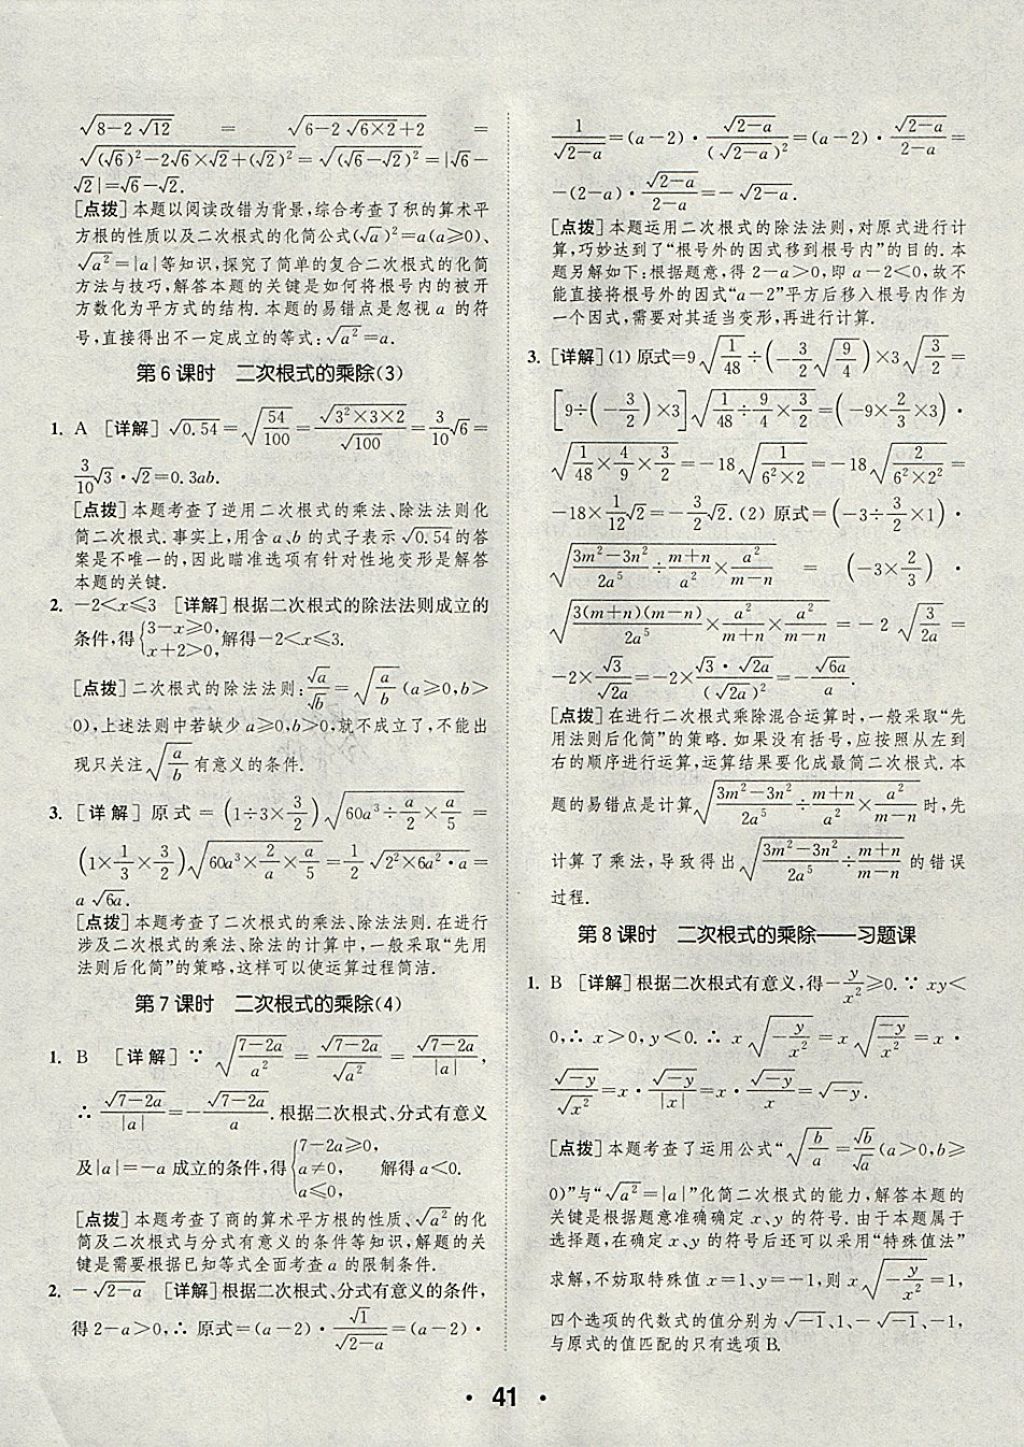 √(8-2√12) = √(6-2√(6×2)+2) =
√((√6)²-2√6×√2+(√2)²)=√((√6-√2)²)=|√6-
√2|=√6-√2.
[点拨]本题以阅读改错为背景,综合考查了积的算术平
方根的性质以及二次根式的化简公式(√a)²=a(a⩾0)、
√a²=|a|等知识,探究了简单的复合二次根式的化简
方法与技巧,解答本题的关键是如何将根号内的被开
方数化为平方式的结构.本题的易错点是忽视 a 的符
号,直接得出不一定成立的等式:√a²=a.
第6课时 二次根式的乘除(3)
1. A [详解]√0.54=√(54/100)=√(3²×3×2)/√100=3/10√6=
3/10√3·√2=0.3ab.
[点拨]本题考查了逆用二次根式的乘法、除法法则化
简二次根式.事实上,用含a、b的式子表示√0.54的答
案是不唯一的,因此瞄准选项有针对性地变形是解答
本题的关键.
2. -2<x⩽3 [详解]根据二次根式的除法法则成立的
条件,得{3-x⩾0, x+2>0, 解得-2<x⩽3.
[点拨]二次根式的除法法则:√a/√b=√(a/b)(a⩾0,b>
0),上述法则中若缺少a⩾0,b>0,就不成立了,不能出
现只关注√(a/b)有意义的条件.
3. [详解]原式=(1÷3×3/2)√(60a³÷a/2×a/5)=
(1×1/3×3/2)√(60a³×2/a×a/5)=1/2√(2²×6a²·a)=
a√6a.
[点拨]本题考查了二次根式的乘法、除法法则.在进行
涉及二次根式的乘法、除法的计算中,一般采取“先用
法则后化简”的策略,这样可以使运算过程简洁.
第7课时 二次根式的乘除(4)
1. B [详解]∵ √((7-2a)/a²) = √(7-2a)/√a² = √(7-2a)/|a|,
∴ √(7-2a)/|a|=-√(7-2a)/a.根据二次根式、分式有意义
及|a|=-a成立的条件,得{7-2a⩾0, a≠0, a⩽0, 解得a<0.
[点拨]本题考查了商的算术平方根的性质、√a²的化
简及二次根式与分式有意义的条件等知识,解题的关
键是需要根据已知等式全面考查a的限制条件.
2. -√(2-a) [详解]根据二次根式、分式有意义的条件,
得2-a>0,∴ 原式=(a-2)·√1/√(2-a)=(a-2)·
1/√(2-a)=(a-2)·√(2-a)/(√(2-a))²=(a-2)·√(2-a)/(2-a)=
-(2-a)·√(2-a)/(2-a)=-√(2-a).
[点拨]本题运用二次根式的除法法则,对原式进行计
算,巧妙达到了“根号外的因式移到根号内”的目的.本
题另解如下:根据题意,得2-a>0,即a-2<0,故不
能直接将根号外的因式“a-2”平方后移入根号内作为
一个因式,需要对其适当变形,再进行计算.
3. [详解](1) 原式=9√(1/48)÷(-3/2√(9/4))×3√(3/2)=
[9÷(-3/2)×3]√(1/48÷9/4×3/2)=(-9×2/3×3)·
√(1/48×4/9×3/2)=-18√(1/(6²×2))=-18√(2/(6²×2²))=
-18×1/12√2=-3/2√2.(2) 原式=(-3÷3/2×1)·
√((3m²-3n²)/2a⁵÷(m+n)/a²×a²/(m-n)) = (-3×2/3)·
√(3(m+n)(m-n)/2a⁵×a²/(m+n)×a²/(m-n))=-2√(3/2a)=
-2×√3/√2a=-2×√3·√2a/(√2a)²=-√6a/a.
[点拨]在进行二次根式乘除混合运算时,一般采取“先
用法则后化简”的策略.如果没有括号,应按照从左到
右的顺序进行运算,运算结果要化成最简二次根式.本
题的易错点是计算√((3m²-3n²)/2a⁵÷(m+n)/a²×a²/(m-n))时,先
计算了乘法,导致得出√((3m²-3n²)/2a⁵÷(m+n)/(m-n))的错误
过程.
第8课时 二次根式的乘除——习题课
1. B [详解]根据二次根式有意义,得-y/x²⩾0.∵ xy<
0,∴ x>0,y<0.∴ x√(-y/x²)=x√(-y/x²)=x·
√-y/√x²=x·√-y/|x|=x·√-y/x=√-y.
[点拨]本题考查了运用公式“√(b/a)=√b/√a(a>0,b⩾
0)”与“√a²=|a|”化简二次根式的能力,解答本题的
关键是根据题意准确确定x、y的符号.由于本题属于
选择题,在确定x、y的符号后还可以采用“特殊值法”
求解,不妨取特殊值x=1、y=-1,则x√(-y/x²)=1,
四个选项的代数式的值分别为√-1、1、-√-1、-1,
与原式的值匹配的只有选项B.
· 41 ·